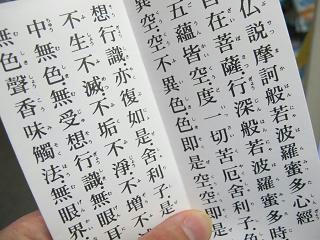 仏説摩訶般若波羅蜜多心經
自在菩薩行深般若波羅蜜多時
五蘊皆空度一切苦厄舍利子色
異空空不異色色即是空空即是
想行識亦復如是舍利子是
不生不滅不垢不淨不增不
中無色無受想行識無眼
無色聲香味觸法無眼界